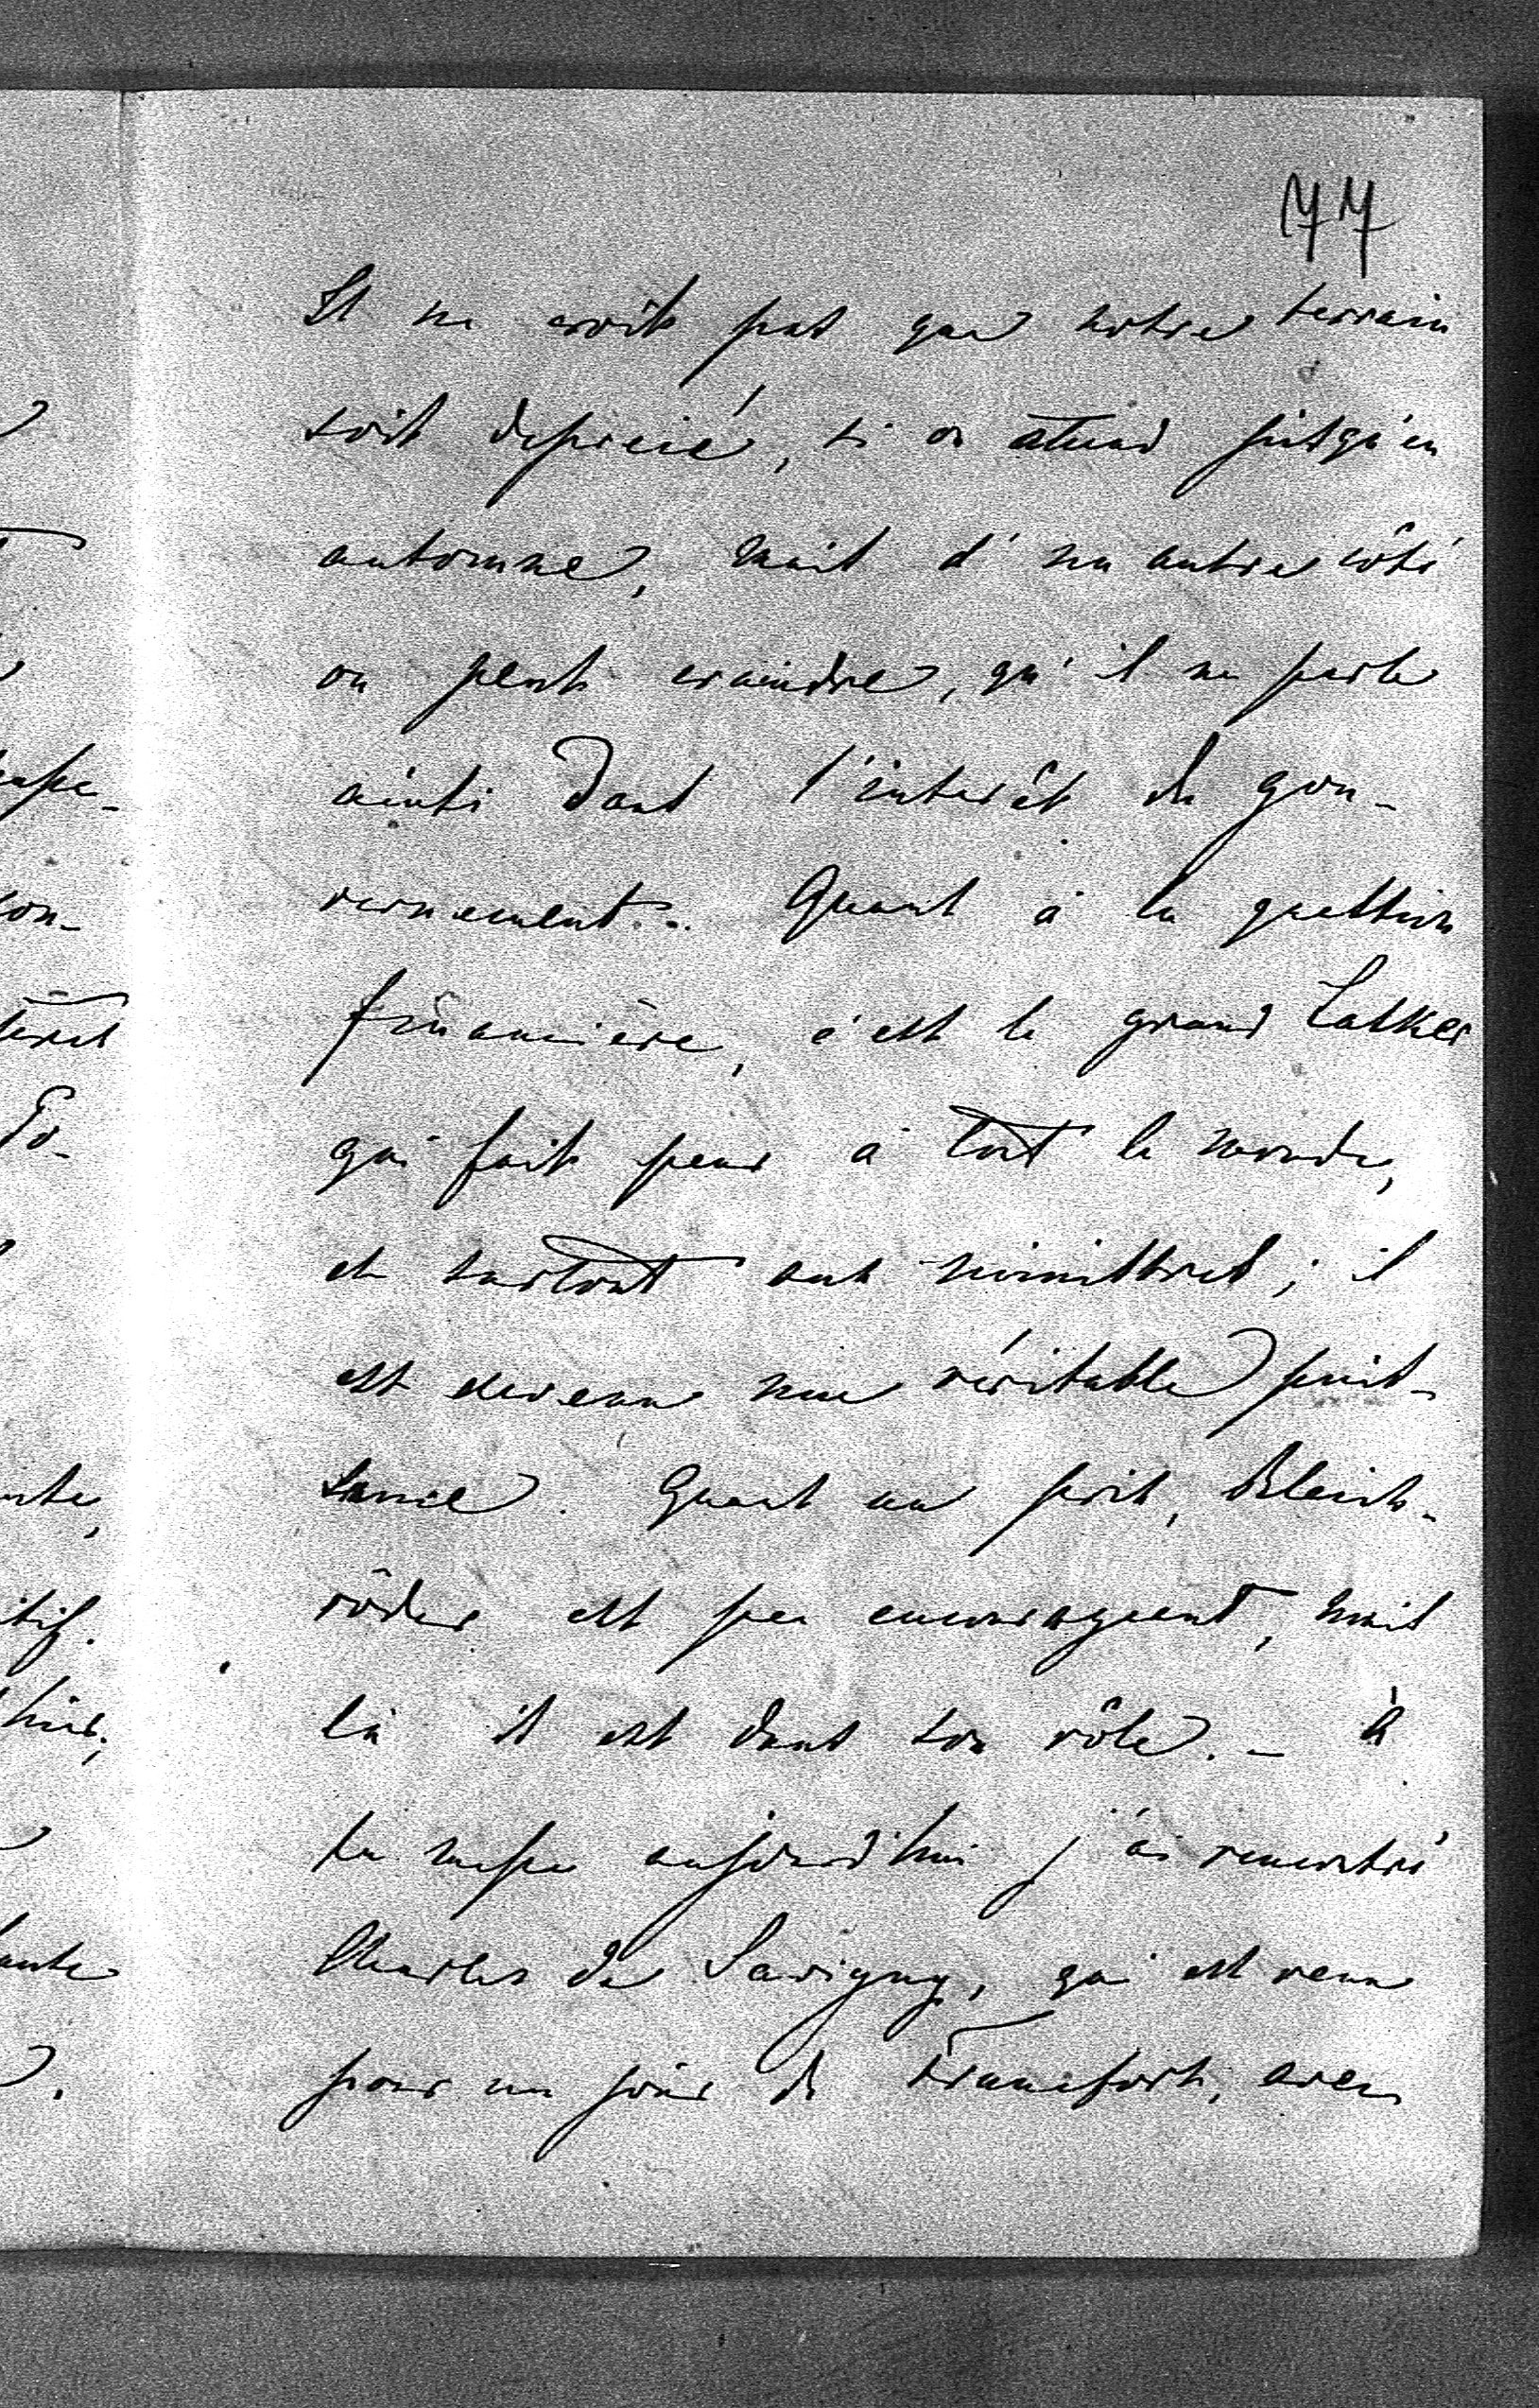 77
Il ne croit pas que notre terrain
soit déprecié, si on attend jusqu'en
automne, mais d'un autre côté
on peut craindre, qu'il ne parle
ainsi dans l'intérêt du gou-
vernement. Quant à la question
financière, c'est le grand Lasker
qui fait peur à tout le monde,
et surtout aux ministres; il
est devenu une véritable puis-
sance. Quant au prix, Bleich-
röder est peu encourageant, mais
là il est dans son rôle. – À
la messe aujourd'hui j'ai rencontré
Charles de Savigny, qui est venu
pour un jour de Francfort, avec